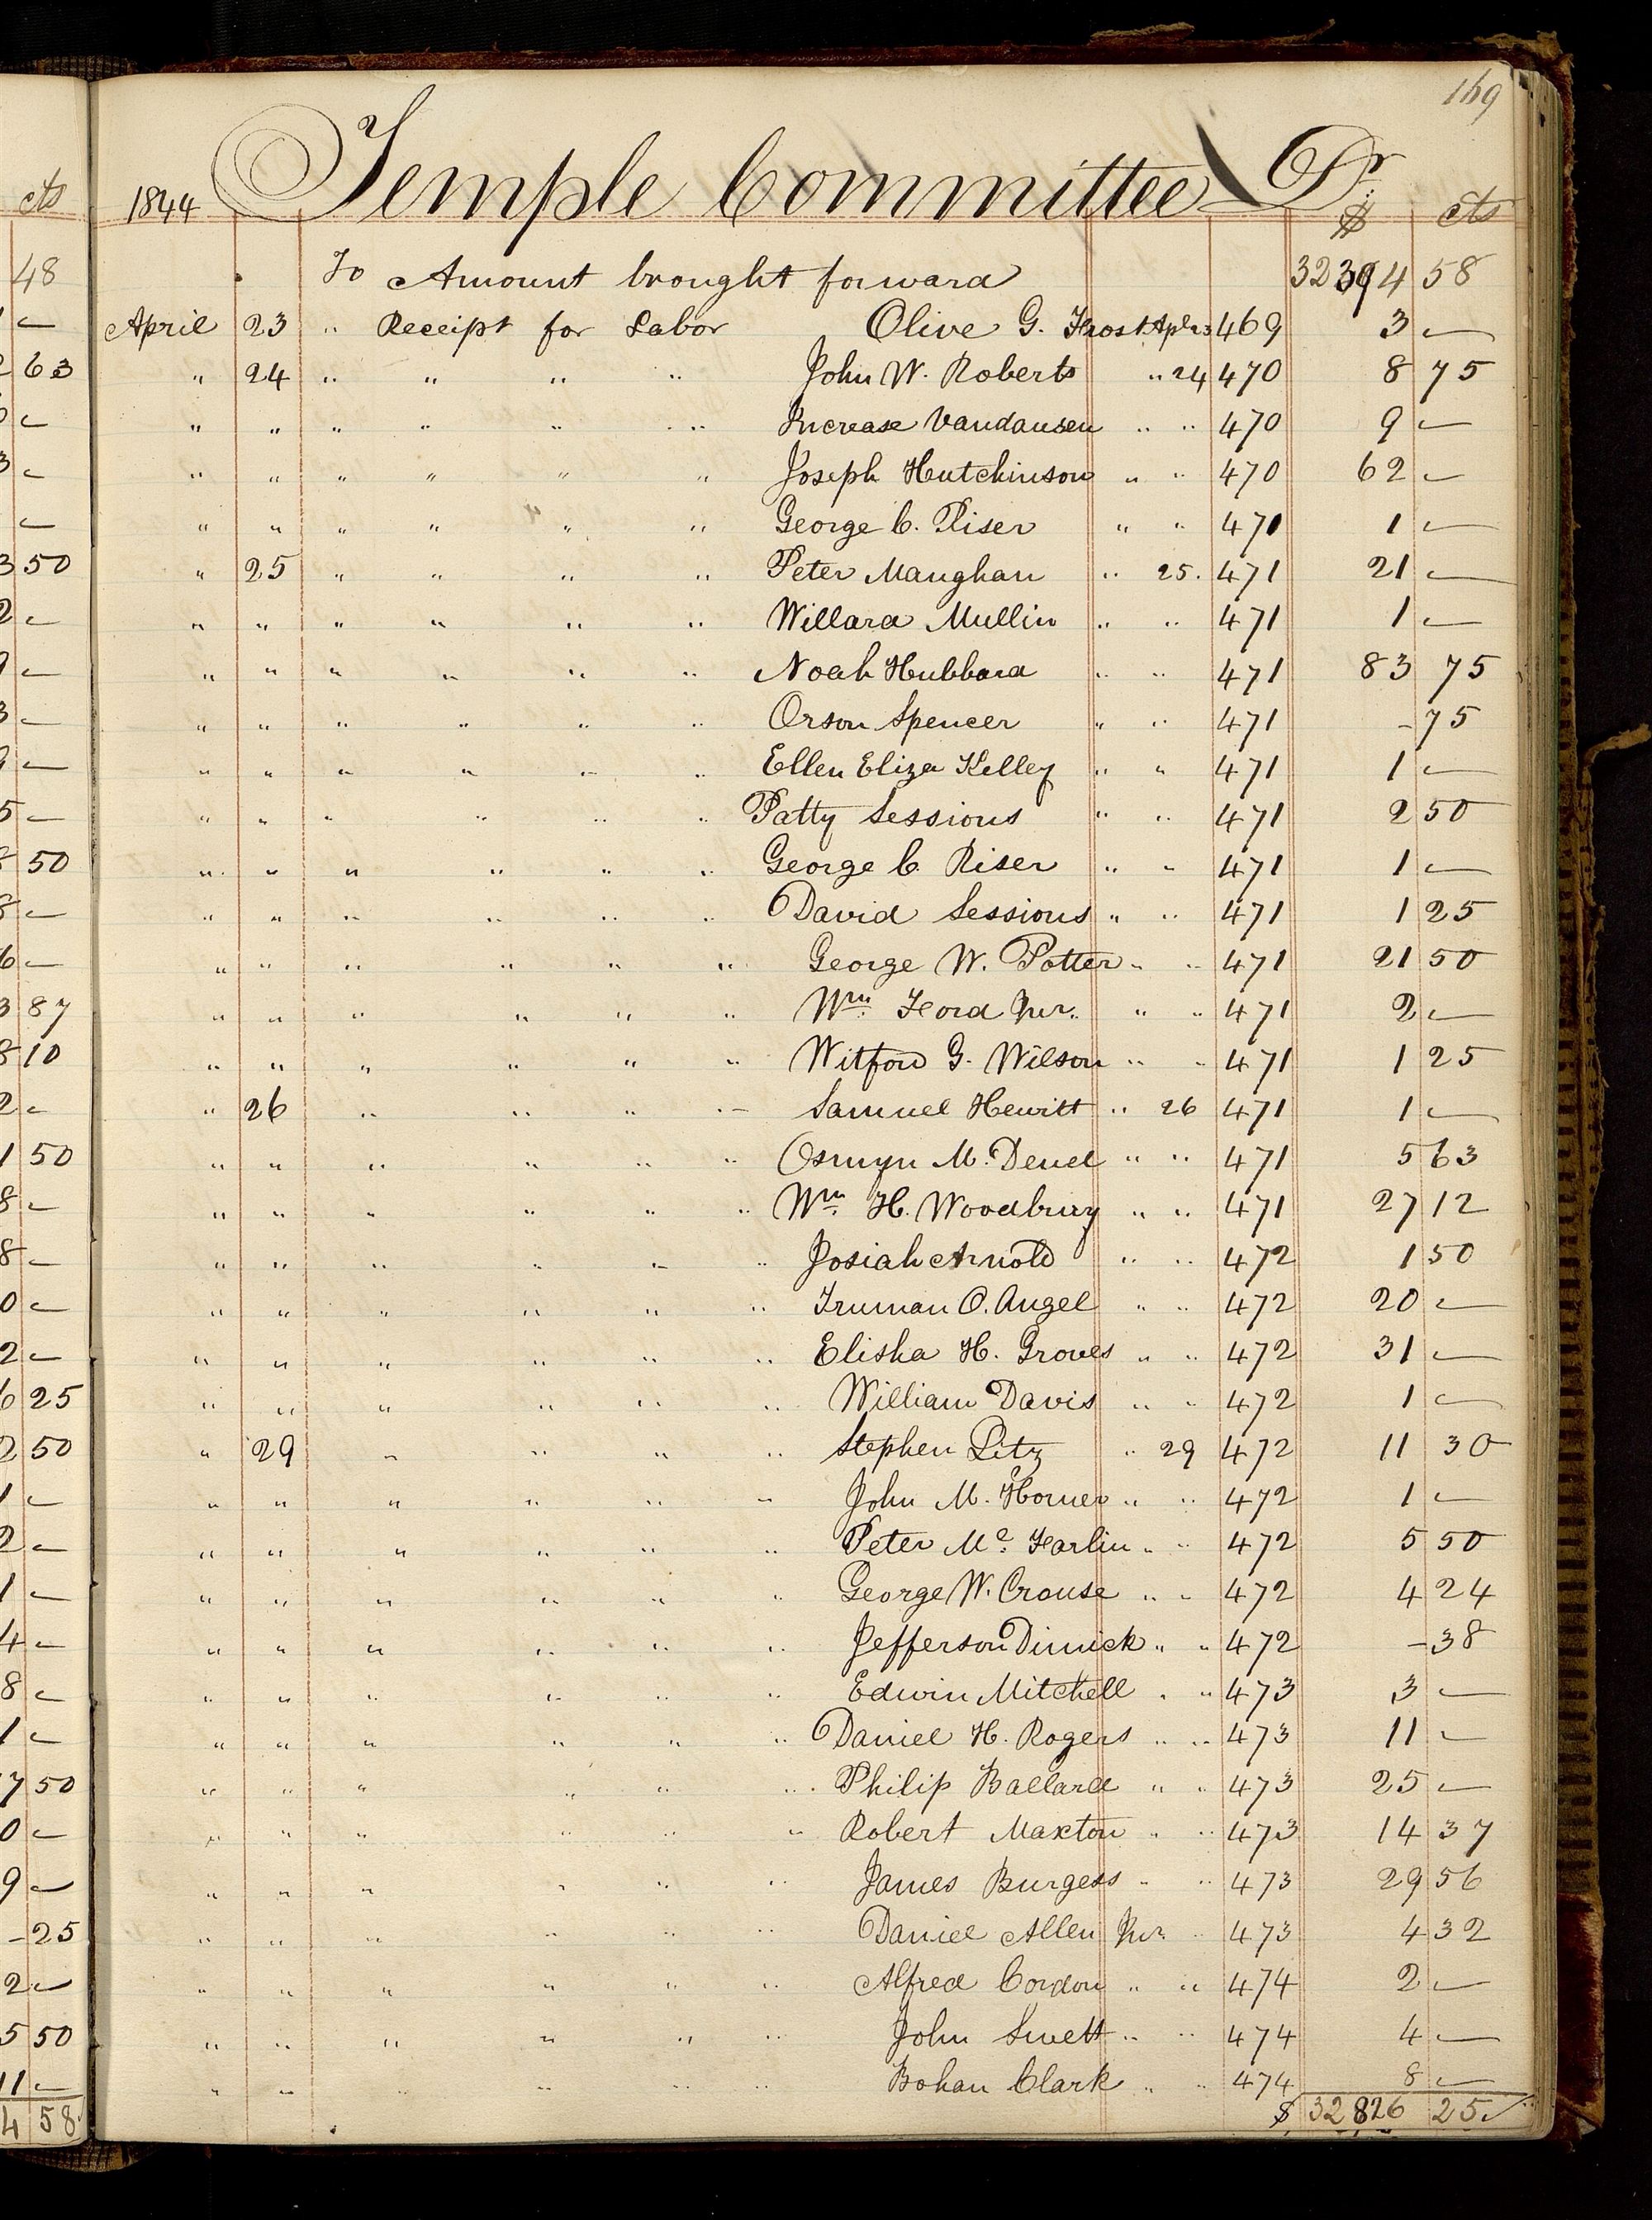 169
1844 Temple Committee Dr
$ cts
To Amount brought forward 32394 58
April 23 " Receipt for Labor Olive G. Frost Apl 23 469 3 —
" 24 " " " " John W. Roberts " 24 470 8 75
" " " " " " Increase Vandausen " " 470 9 —
" " " " " " Joseph Hutchinson " " 470 62 —
" " " " " " George C. Riser " " 471 1 —
" 25 " " " " Peter Maughan " 25. 471 21 —
" " " " " " Willard Mullin " " 471 1 —
" " " " " " Noah Hubbard " " 471 83 75
" " " " " " Orson Spencer " " 471 - 75
" " " " " " Ellen Eliza Kelley " " 471 1 —
" " " " " " Patty Sessions " " 471 2 50
" " " " " " George C. Riser " " 471 1 —
" " " " " " David Sessions " " 471 1 25
" " " " " " George W. Potter " " 471 21 50
" " " " " " Wm. Ford Jnr. " " 471 2 —
" " " " " " Witford G. Wilson " " 471 1 25
" 26 " " " " Samuel Hewitt " 26 471 1 —
" " " " " " Osmyn M. Deuel " " 471 5 63
" " " " " " Wm. H. Woodbury " " 471 27 12
" " " " " " Josiah Arnold " " 472 1 50
" " " " " " Truman O. Angel " " 472 20 —
" " " " " " Elisha H. Groves " " 472 31 —
" " " " " " William Davis " " 472 1 —
" 29 " " " " Stephen Litz " 29 472 11 30
" " " " " " John M. Horner " " 472 1 —
" " " " " " Peter Mc. Farlin " " 472 5 50
" " " " " " George W. Crouse " " 472 4 24
" " " " " " Jefferson Dimick " " 472 - 38
" " " " " " Edwin Mitchell " " 473 3 —
" " " " " " Daniel H. Rogers " " 473 11 —
" " " " " " Philip Ballard " " 473 25 —
" " " " " " Robert Maxton " " 473 14 37
" " " " " " James Burgess " " 473 29 56
" " " " " " Daniel Allen Jnr. " 473 4 32
" " " " " " Alfred Cordon " " 474 2 —
" " " " " " John Swett " " 474 4 —
" " " " " " Bohan Clark " " 474 8 —
$ 32826 25